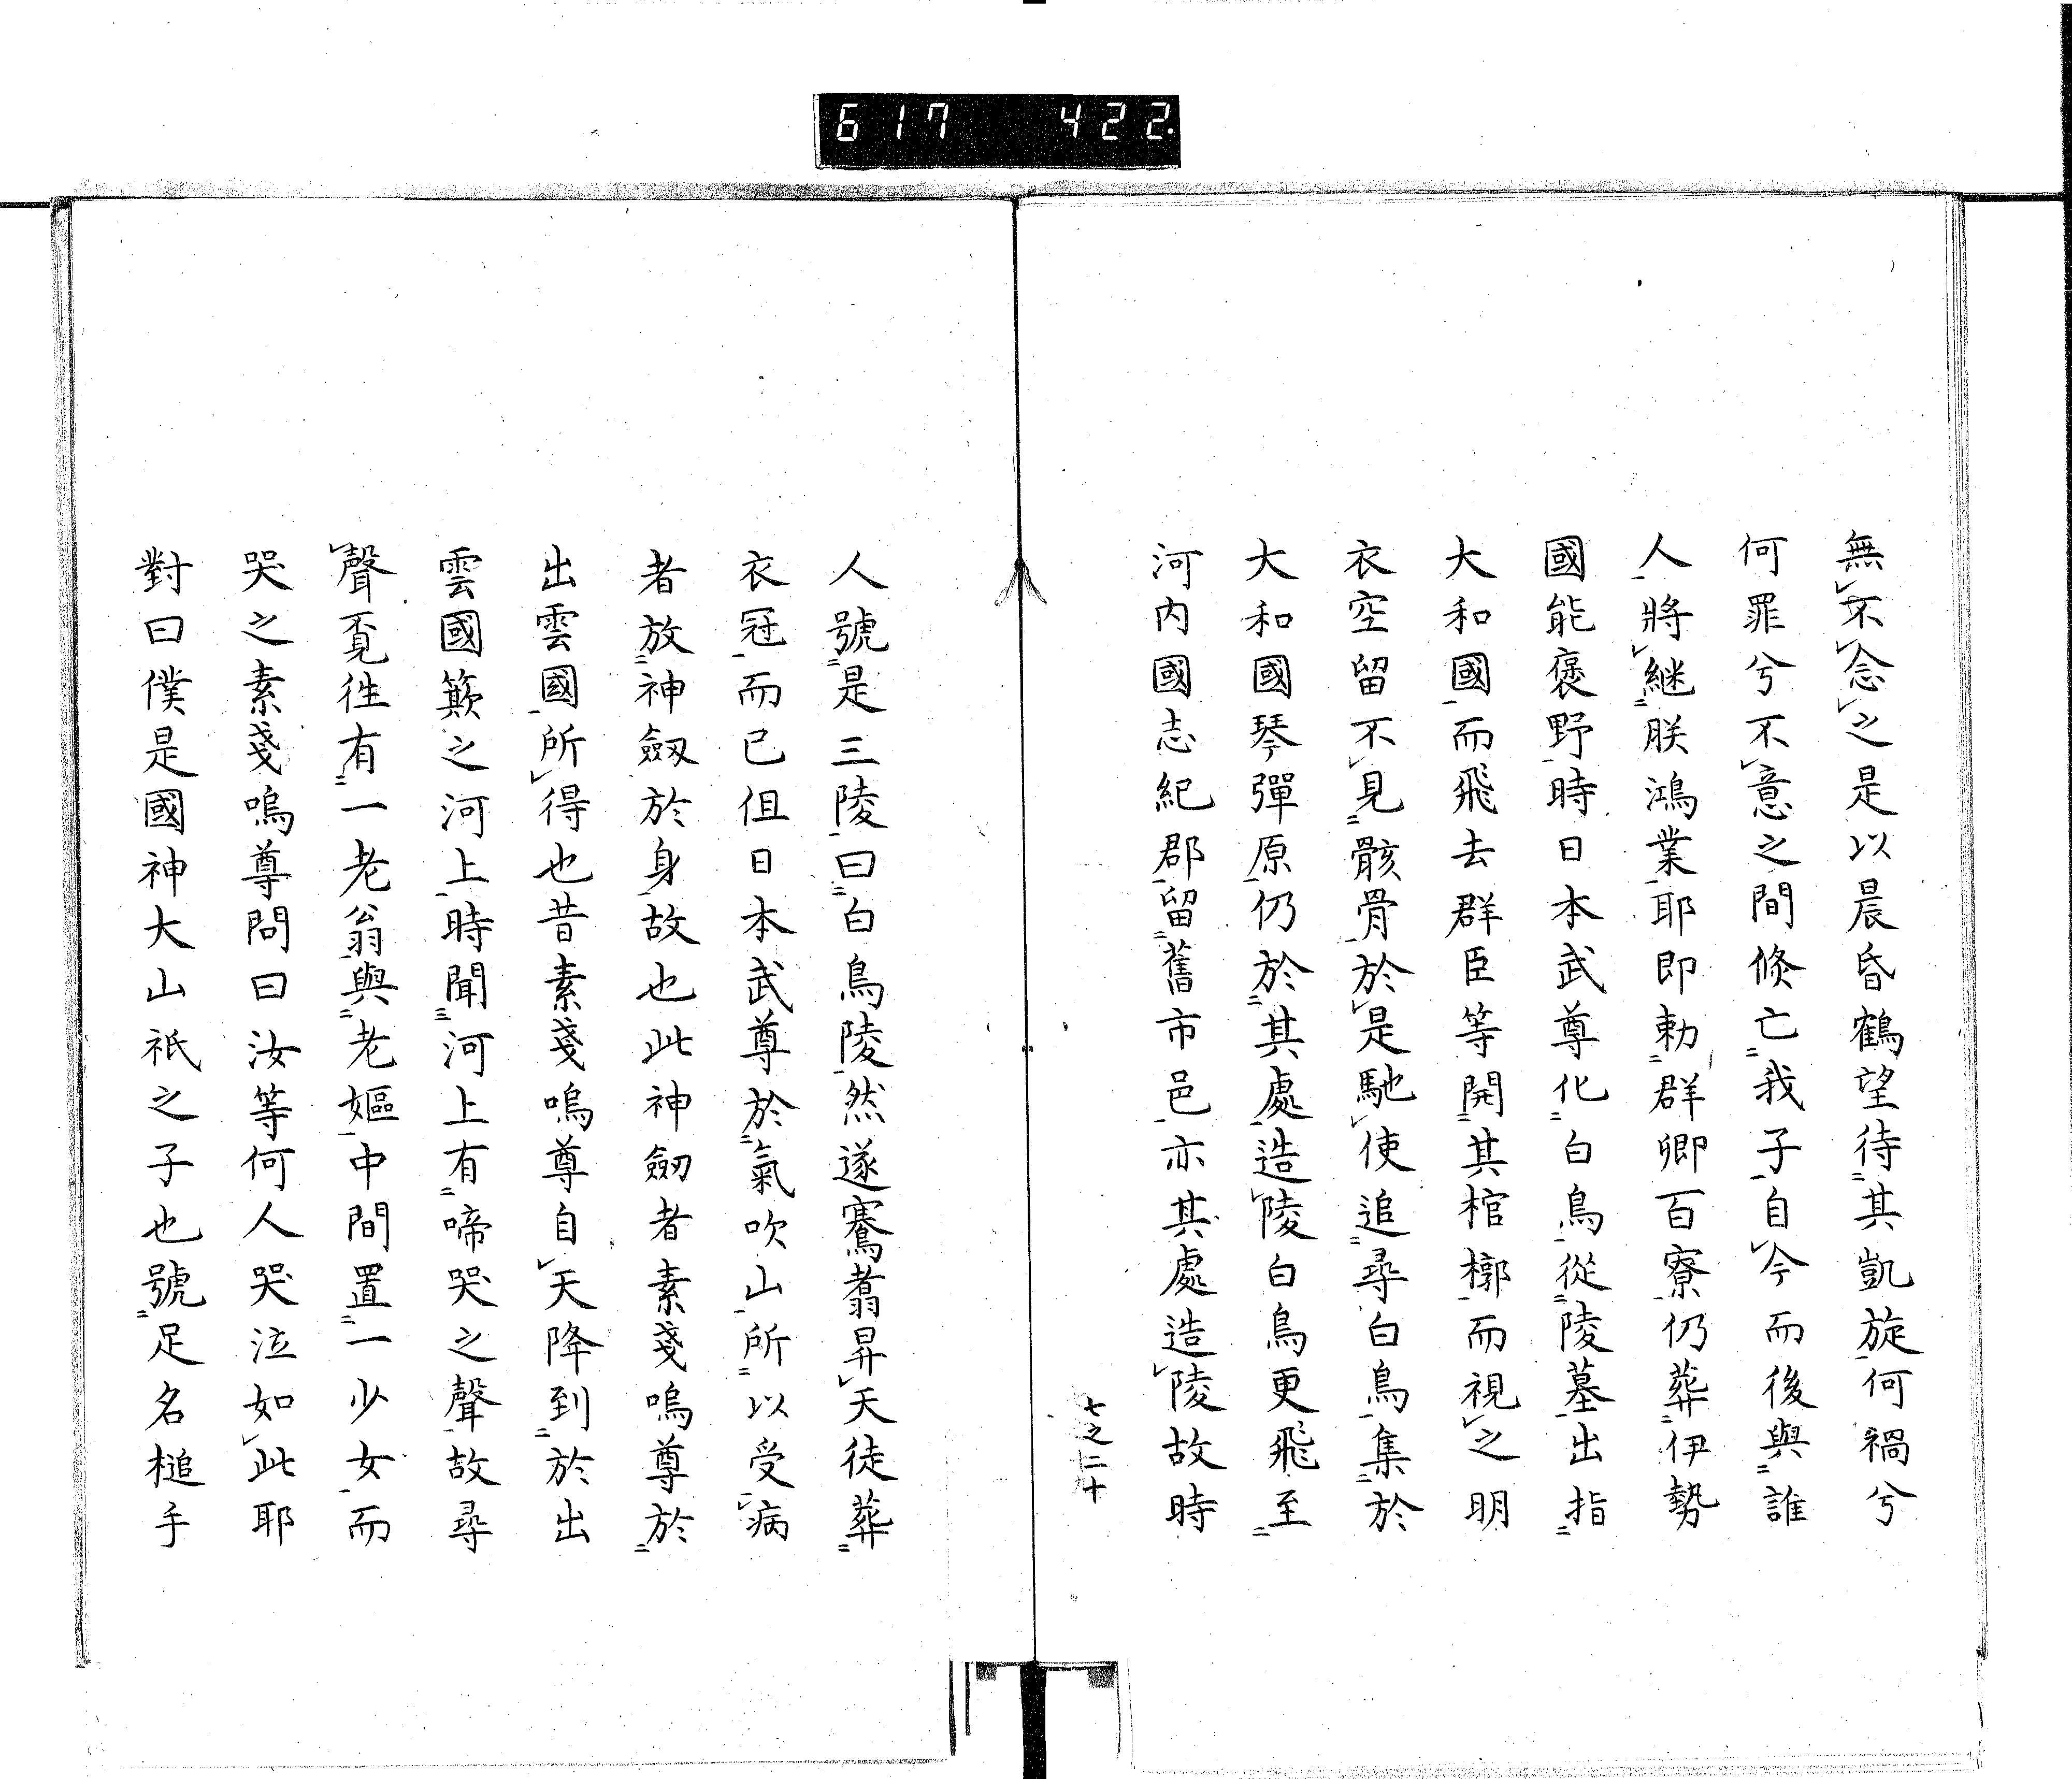 617 422
無不念之是以晨昏鶴望待其凱旋何禍兮
何罪兮不意之間倏亡我子自今而後與誰
人將継朕鴻業耶即勅群卿百寮仍葬伊勢
國能褒野時日本武尊化白鳥從陵墓出指
大和國而飛去群臣等開其棺槨而視之明
衣空留不見骸骨於是馳使追尋白鳥集於
大和國琴彈原仍於其處造陵白鳥更飛至
河内國志紀郡留舊市邑亦其處造陵故時
七之二十
人號是三陵曰白鳥陵然遂騫翥昇天徒葬
衣冠而已但日本武尊於氣吹山所以受病
者放神劔於身故也此神劔者素戔嗚尊於
出雲國所得也昔素戔嗚尊自天降到於出
雲國簸之河上時聞河上有啼哭之聲故尋
聲覓徃有一老翁與老嫗中間置一少女而
哭之素戔嗚尊問曰汝等何人哭泣如此耶
對曰僕是國神大山祇之子也號足名槌手